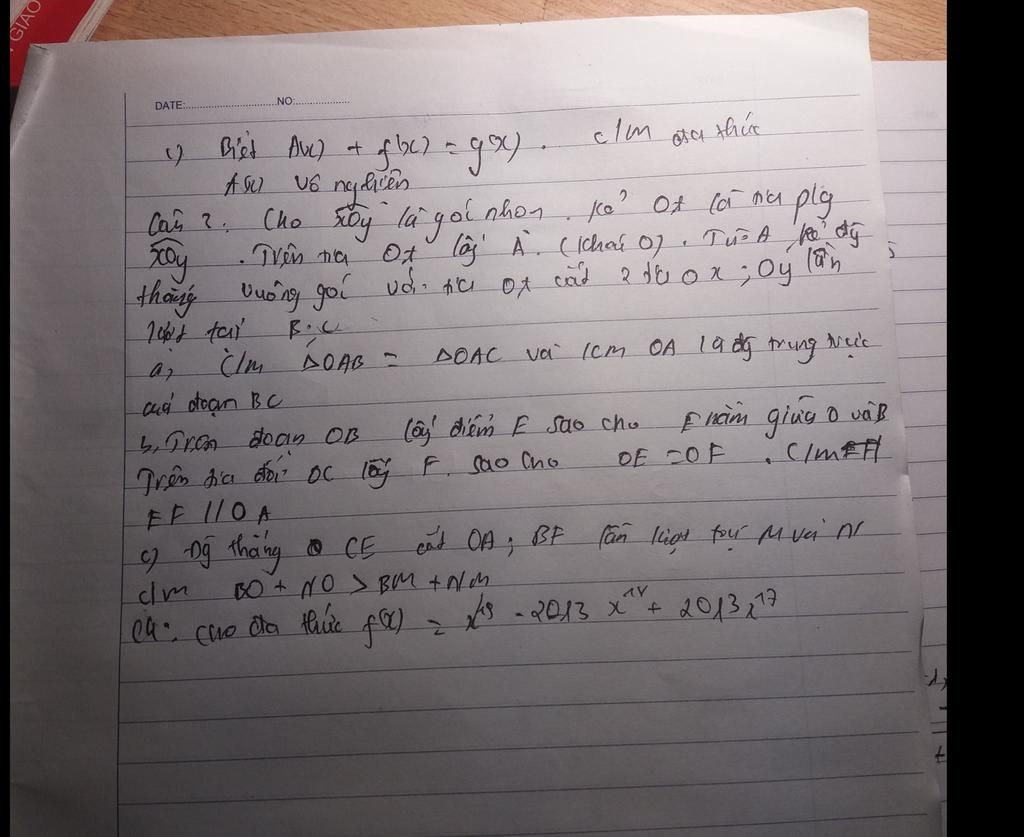 GIAO
DATE:..............................NO:..................
c) Biết A(x) + f(x) = g(x). c/m đa thức
A(x) vô nghiệm
Câu 2: Cho xOy là góc nhọn. kẻ Ot là tia p/g
xOy. Trên tia Ot lấy A. (khác O). Từ A kẻ đg
thẳng vuông góc với tia Ot cắt 2 tia Ox; Oy lần
lượt tại B; C
a, C/m △OAB = △OAC và OA là đg trung trực
của đoạn BC
b, Trên đoạn OB lấy điểm E sao cho E nằm giữa O và B
Trên tia đối OC lấy F. sao cho OE = OF. C/m
EF // OA
c) Đg thẳng CE cắt OA; BF lần lượt tại M và N
c/m BO + NO > BM + NM
Cho đa thức f(x) = - 2013 + 2013x¹⁷